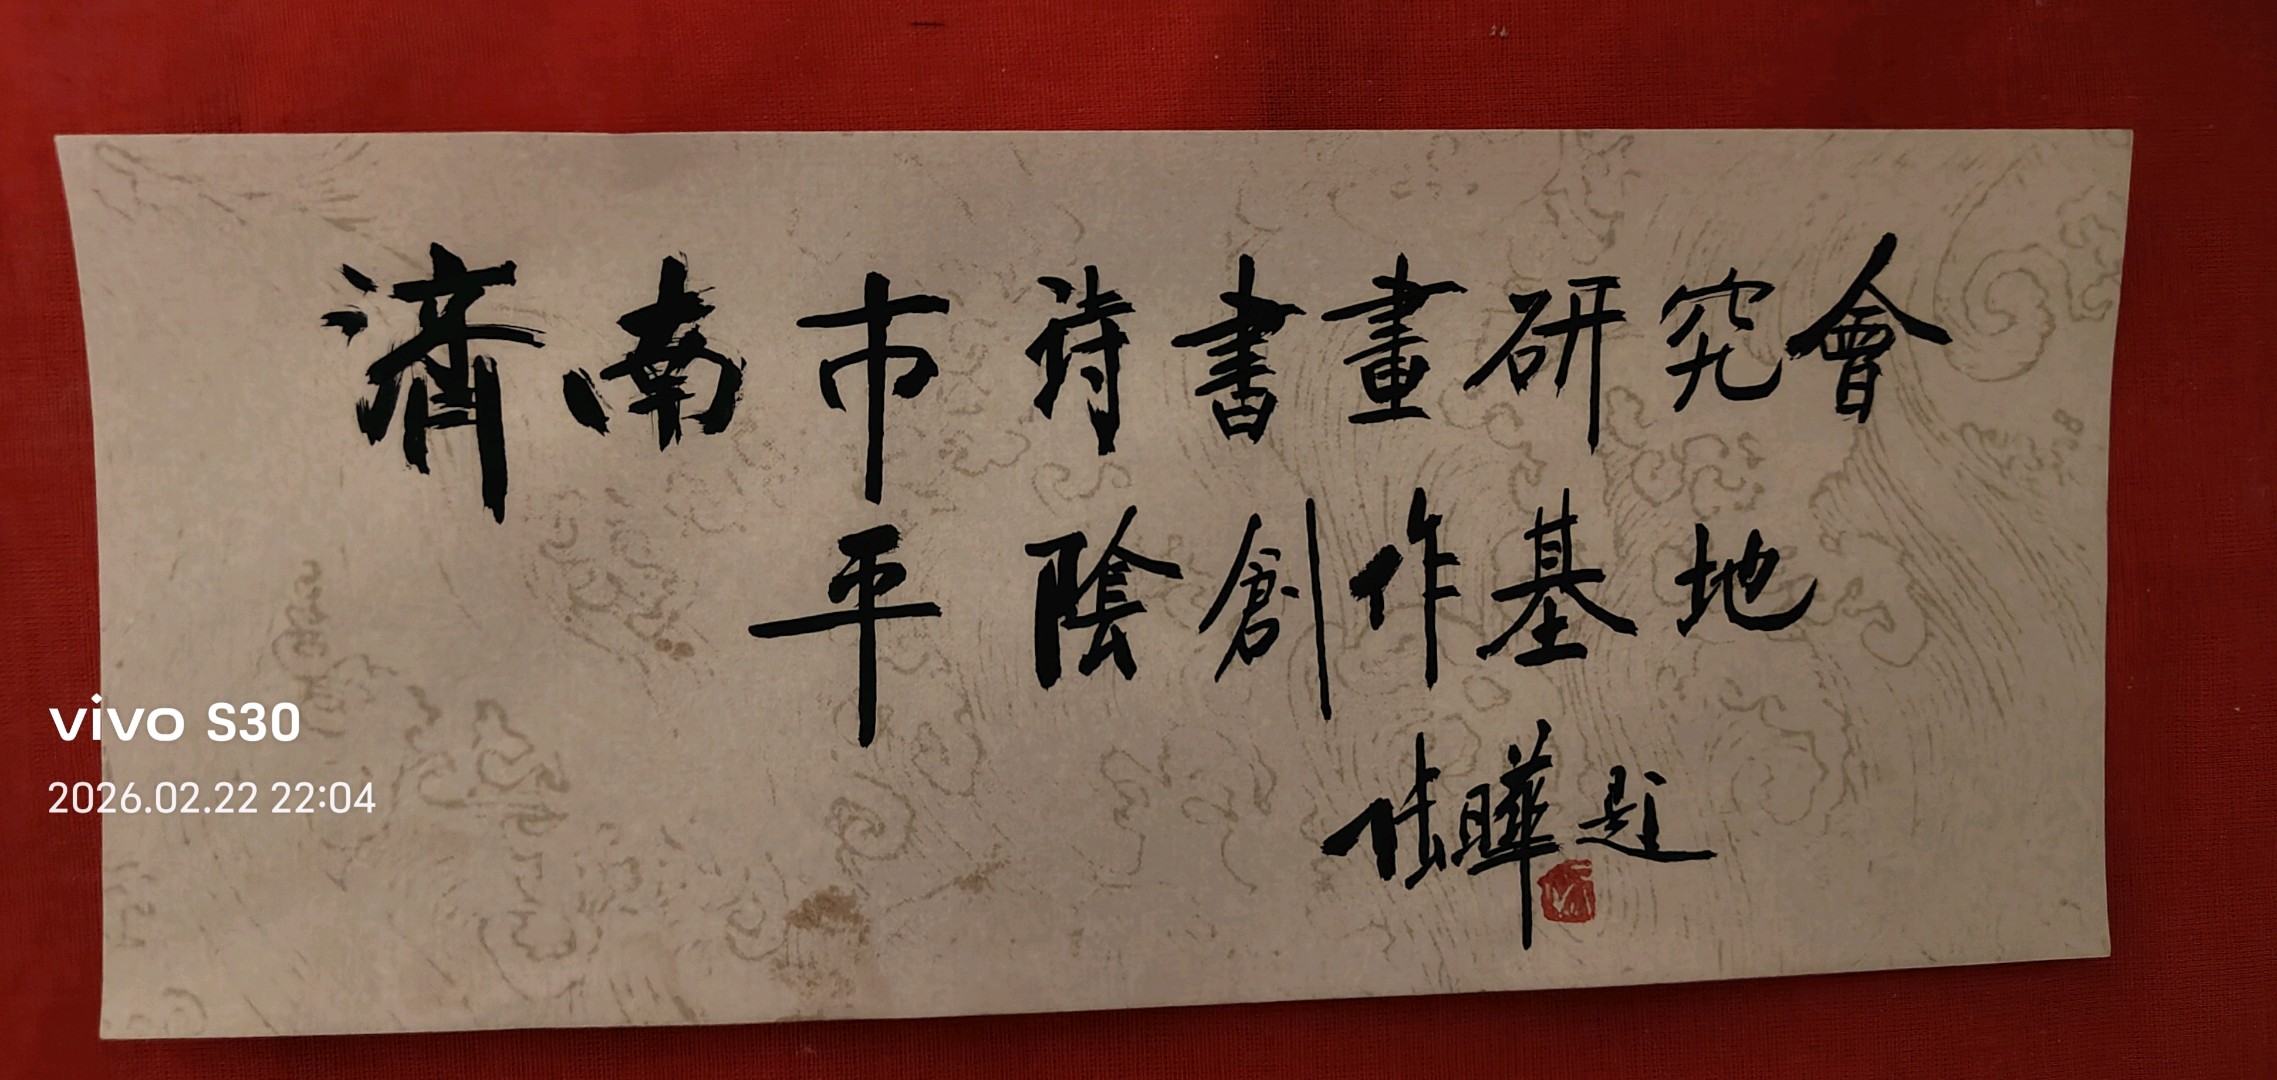 濟南市詩書畫研究會
平陰創作基地
張曄題
vivo S30
2026.02.22 22:04